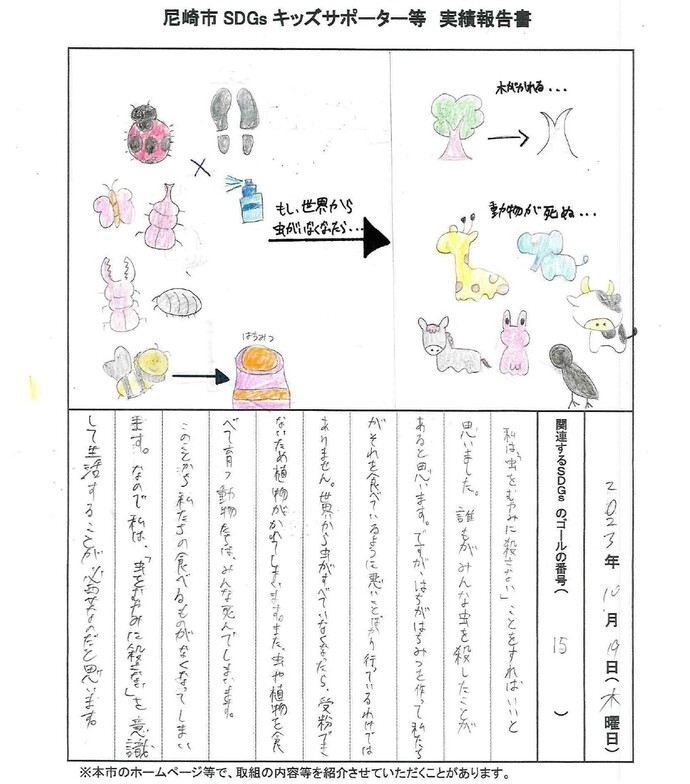 尼崎市 SDGs キッズサポーター等 実績報告書
もし、世界から
虫がいなくなったら...
はちみつ
木がかれる...
動物が死ぬ...
2023年 10月 19日(木曜日)
関連するSDGsのゴールの番号( 15 )
私は、「虫をむやみに殺さない」ことをすればいいと
思いました。誰もがみんな虫を殺したことが
あると思います。ですが、はちがはちみつを作って私たち
がそれを食べているように悪いことばかり行っているわけでは
ありません。世界から虫がすべていなくなったら、受粉でき
ないため植物がかれてしまいます。また、虫や植物を食
べて育つ動物たちは、みんな死んでしまいます。
このことから私たちの食べるものがなくなってしまい
ます。なので私は、「虫をむやみに殺さない」を意識
して生活することが必要なのだと思います。
※本市のホームページ等で、取組の内容等を紹介させていただくことがあります。